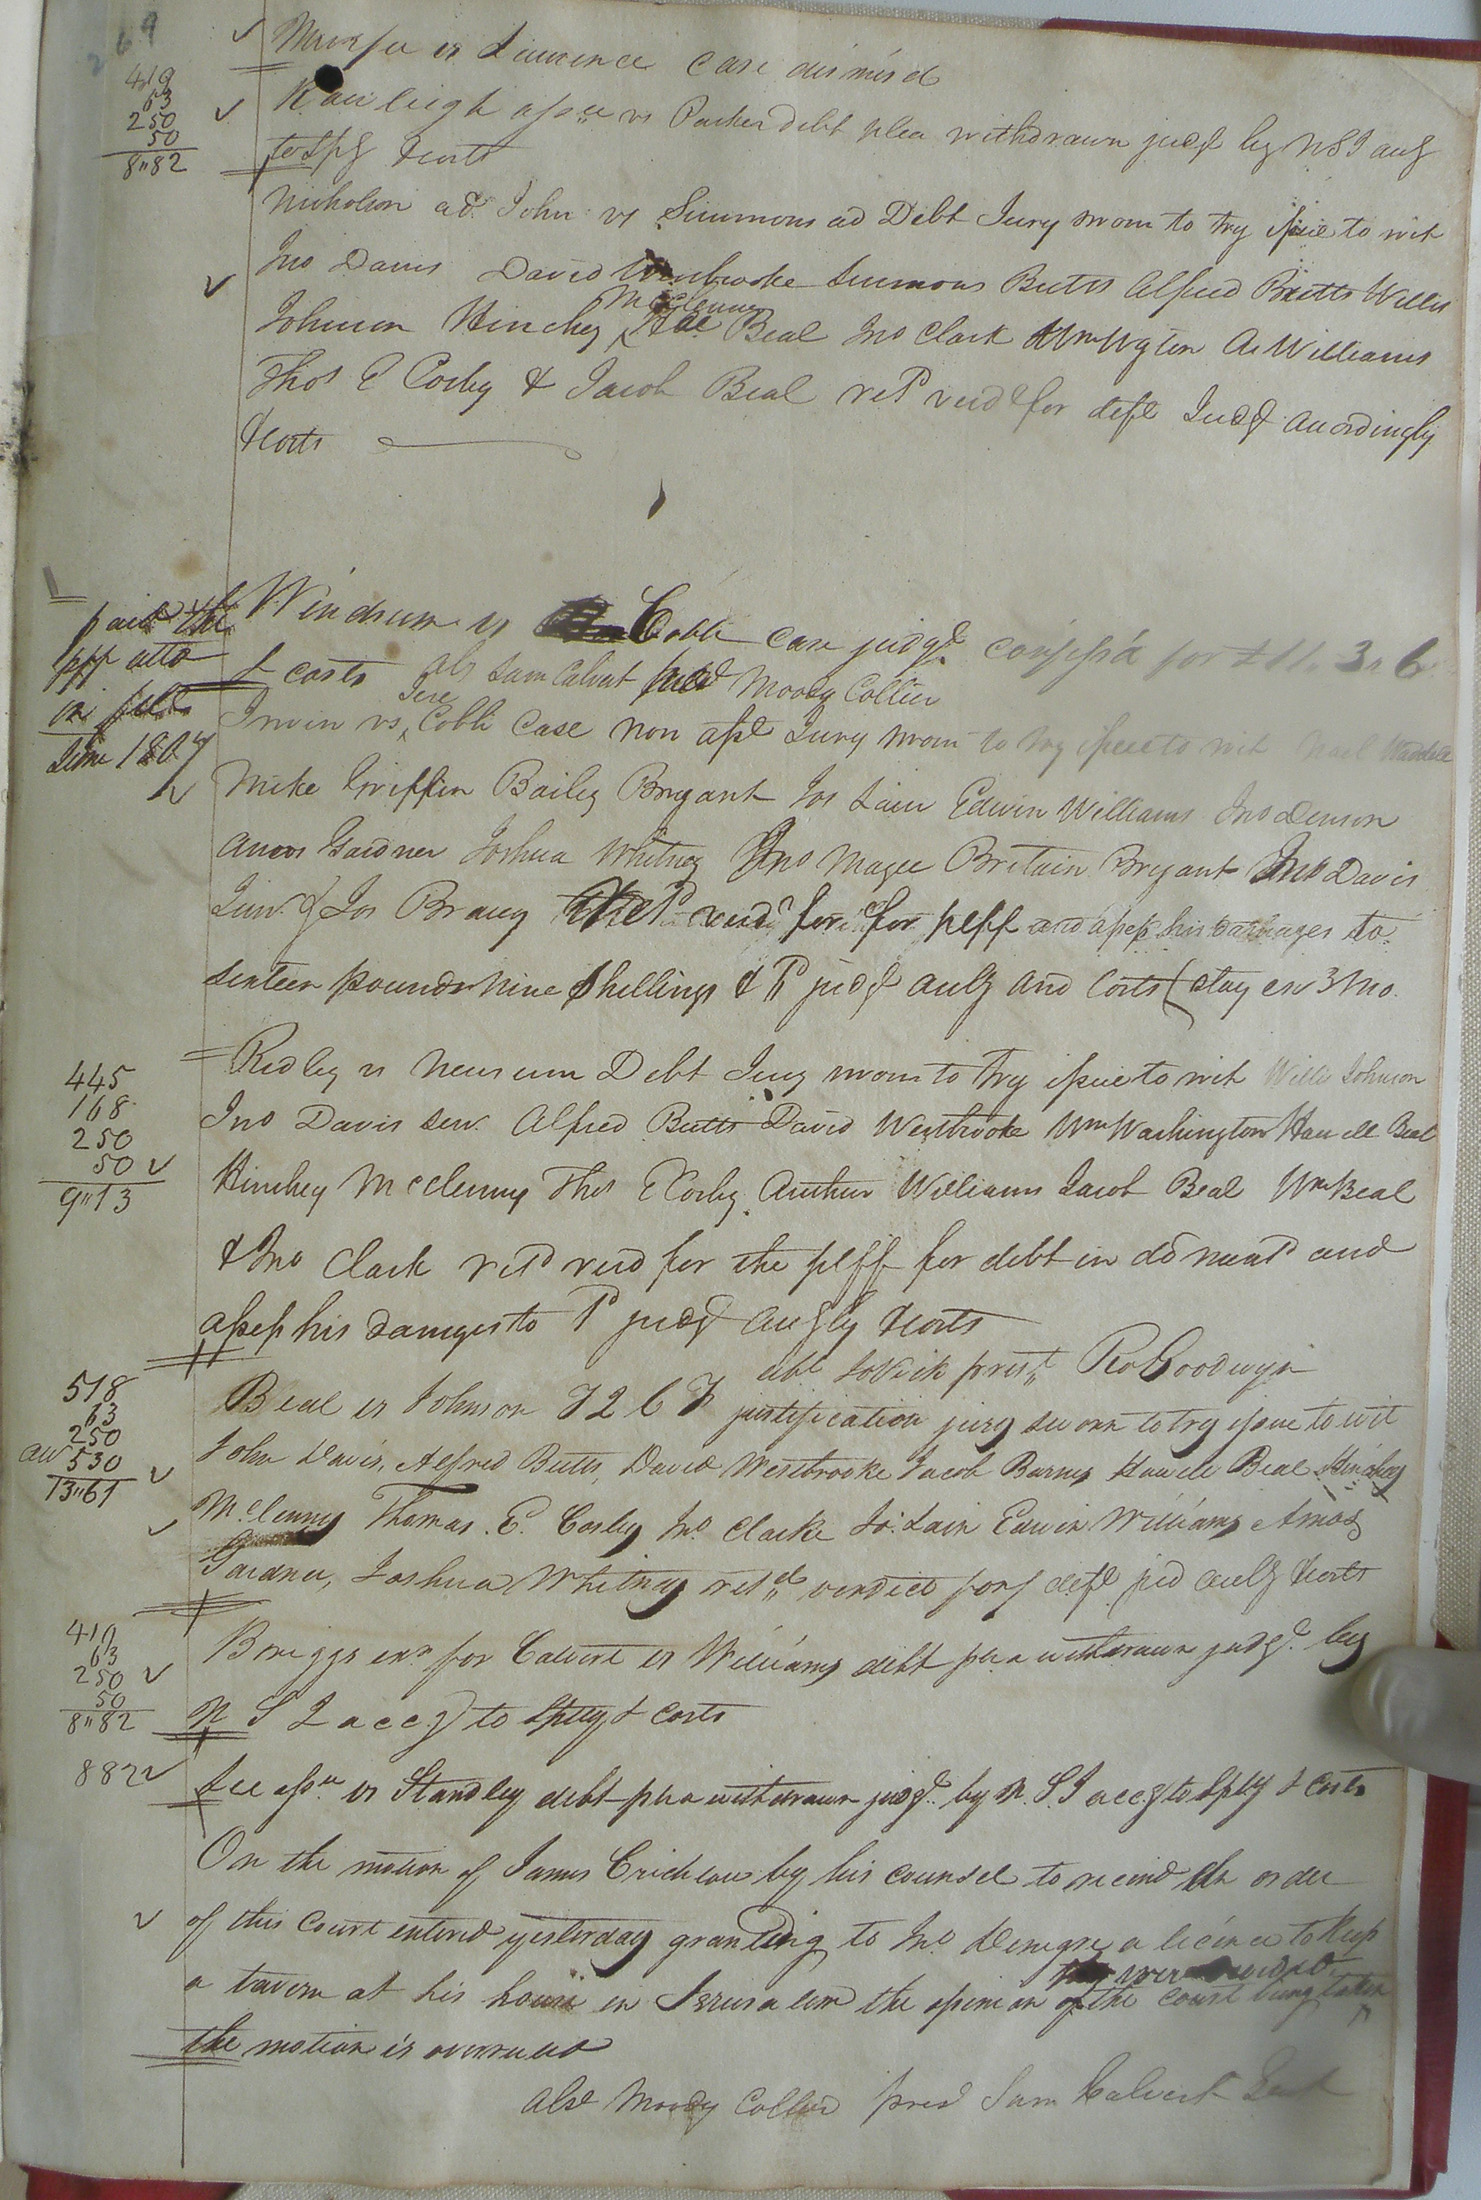 269
vs Lawrence Case dismisd
419
63
250
50
8"82
Rawleigh assee vs Parker debt plea withdrawn judgt by NSI accg
to Spy & costs
Nicholson ad. John vs Simmons ad Debt Jury sworn to try issue to wit
Jno Davis David Westbrooke Simmons Butts Alfred Britts Willis
McClenny
Johnson Hinchey Beal Jno Clark Wm Wgton Ar Williams
Thos E Cosby & Jacob Beal retd verdt for deft Judgt accordingly
& costs
paid the
plff atto
in full
June 1807
Windrum vs Cobb Case judgt confess'd for £11.3.6
& costs abs Sam Calvert pred Moody Collier
Jere
Irvin vs Cobb Case non asst Jury sworn to try issue to wit Noel Waddell
Mike Griffin Bailey Bryant Jos Lain Edwin Williams Jno Denson
Amos Gardner Joshua Whitney Jno Magee Britain Bryant Jno Davis
Junr & Jos Bracy Retd verdt for for plff and assess his damages to
sixteen pounds Nine Shillings & 1d judgt accg and Costs (stay exn 3 Mo.
445
168
250
50
9"13
Ridley vs Newsum Debt Jury sworn to try issue to wit Willis Johnson
Jno Davis Senr Alfred Butts David Westbrooke Wm Washington Howell Beal
Hinchey McClenny Thos E Cosby Arthur Williams Jacob Beal Wm Beal
& Jno Clark retd verd for the plff for debt in do ment'd and
assess his damages to 1d judgt accgly & costs
abt Lovick prest Ro Goodwyn
518
63
250
aw 530
13"61
Beal vs Johnson justification jury sworn to try issue to wit
John Davis, Alfred Butts, David Westbrooke Jacob Barnes Howell Beal Hinchey
McClenny Thomas E. Cosby Jno Clarke Jo: Lain Edwin Williams Amos
Gardner, Joshua Whitney retd verdict for deft jud accg & costs
419
63
250
50
8"82
Briggs exr for Calvert vs Williams debt plea withdrawn judgt by
N S I accg to Splty & costs
882
Lee assee vs Standley debt plea withdrawn judgt by N. S. I accg to Splty & Costs
On the motion of James Crichlow by his counsel to recind the order
of this Court entered yesterday granting to Jno Denegre a licence to keep
a tavern at his house in Jerusalem the opinion of the court being taken
the motion is overruled
abst Moody Collier pred Sam Calvert Gent